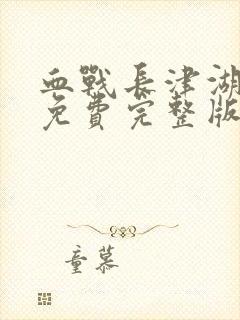 血戰長津湖
免費完整版
童慕